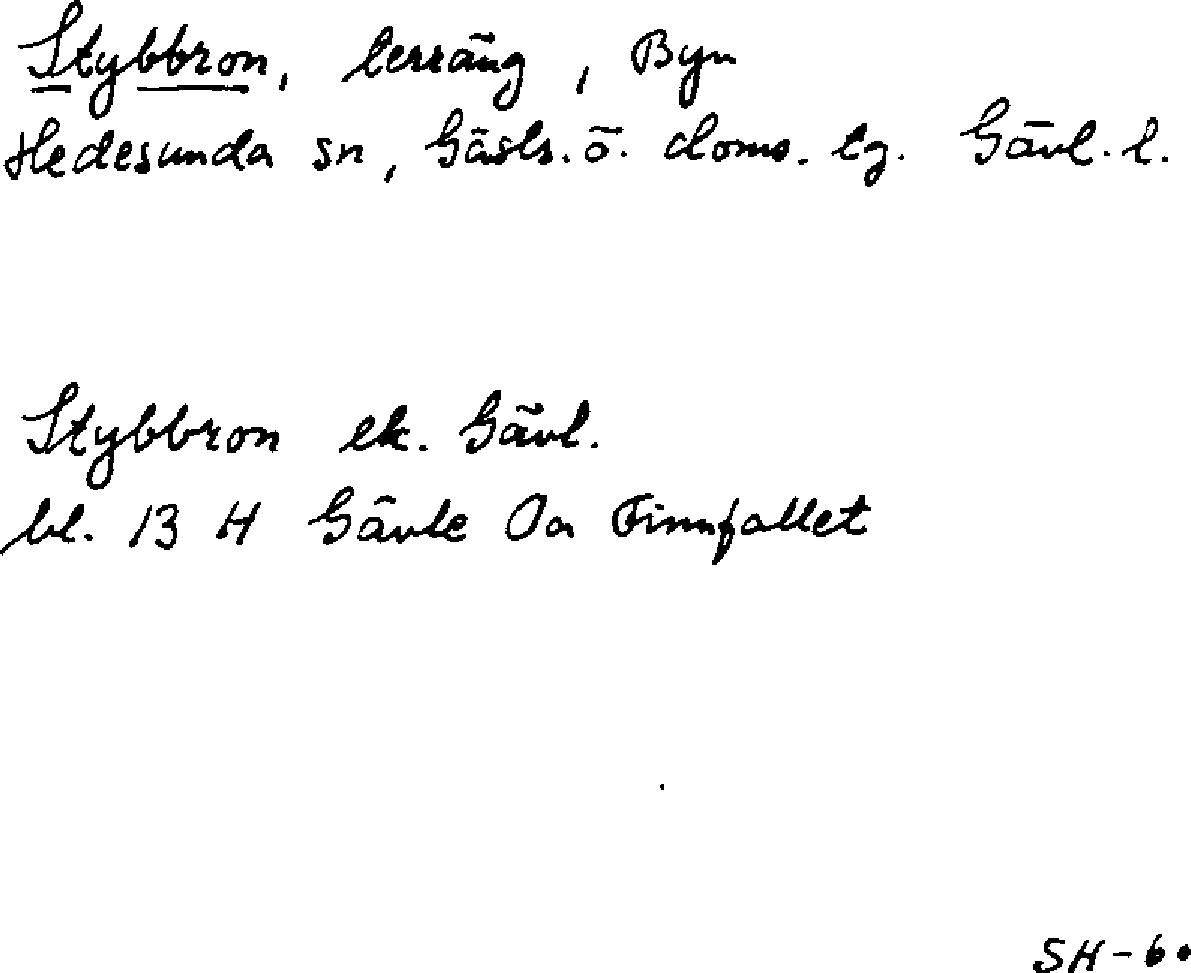 Stybbron, terräng, Byn
Hedesunda sn, Gästr. ö. doms. tg. Gävl. l.
Stybbron ek. Gävl.
bl. 13 H Gävle 0a Finnfallet
SH-60